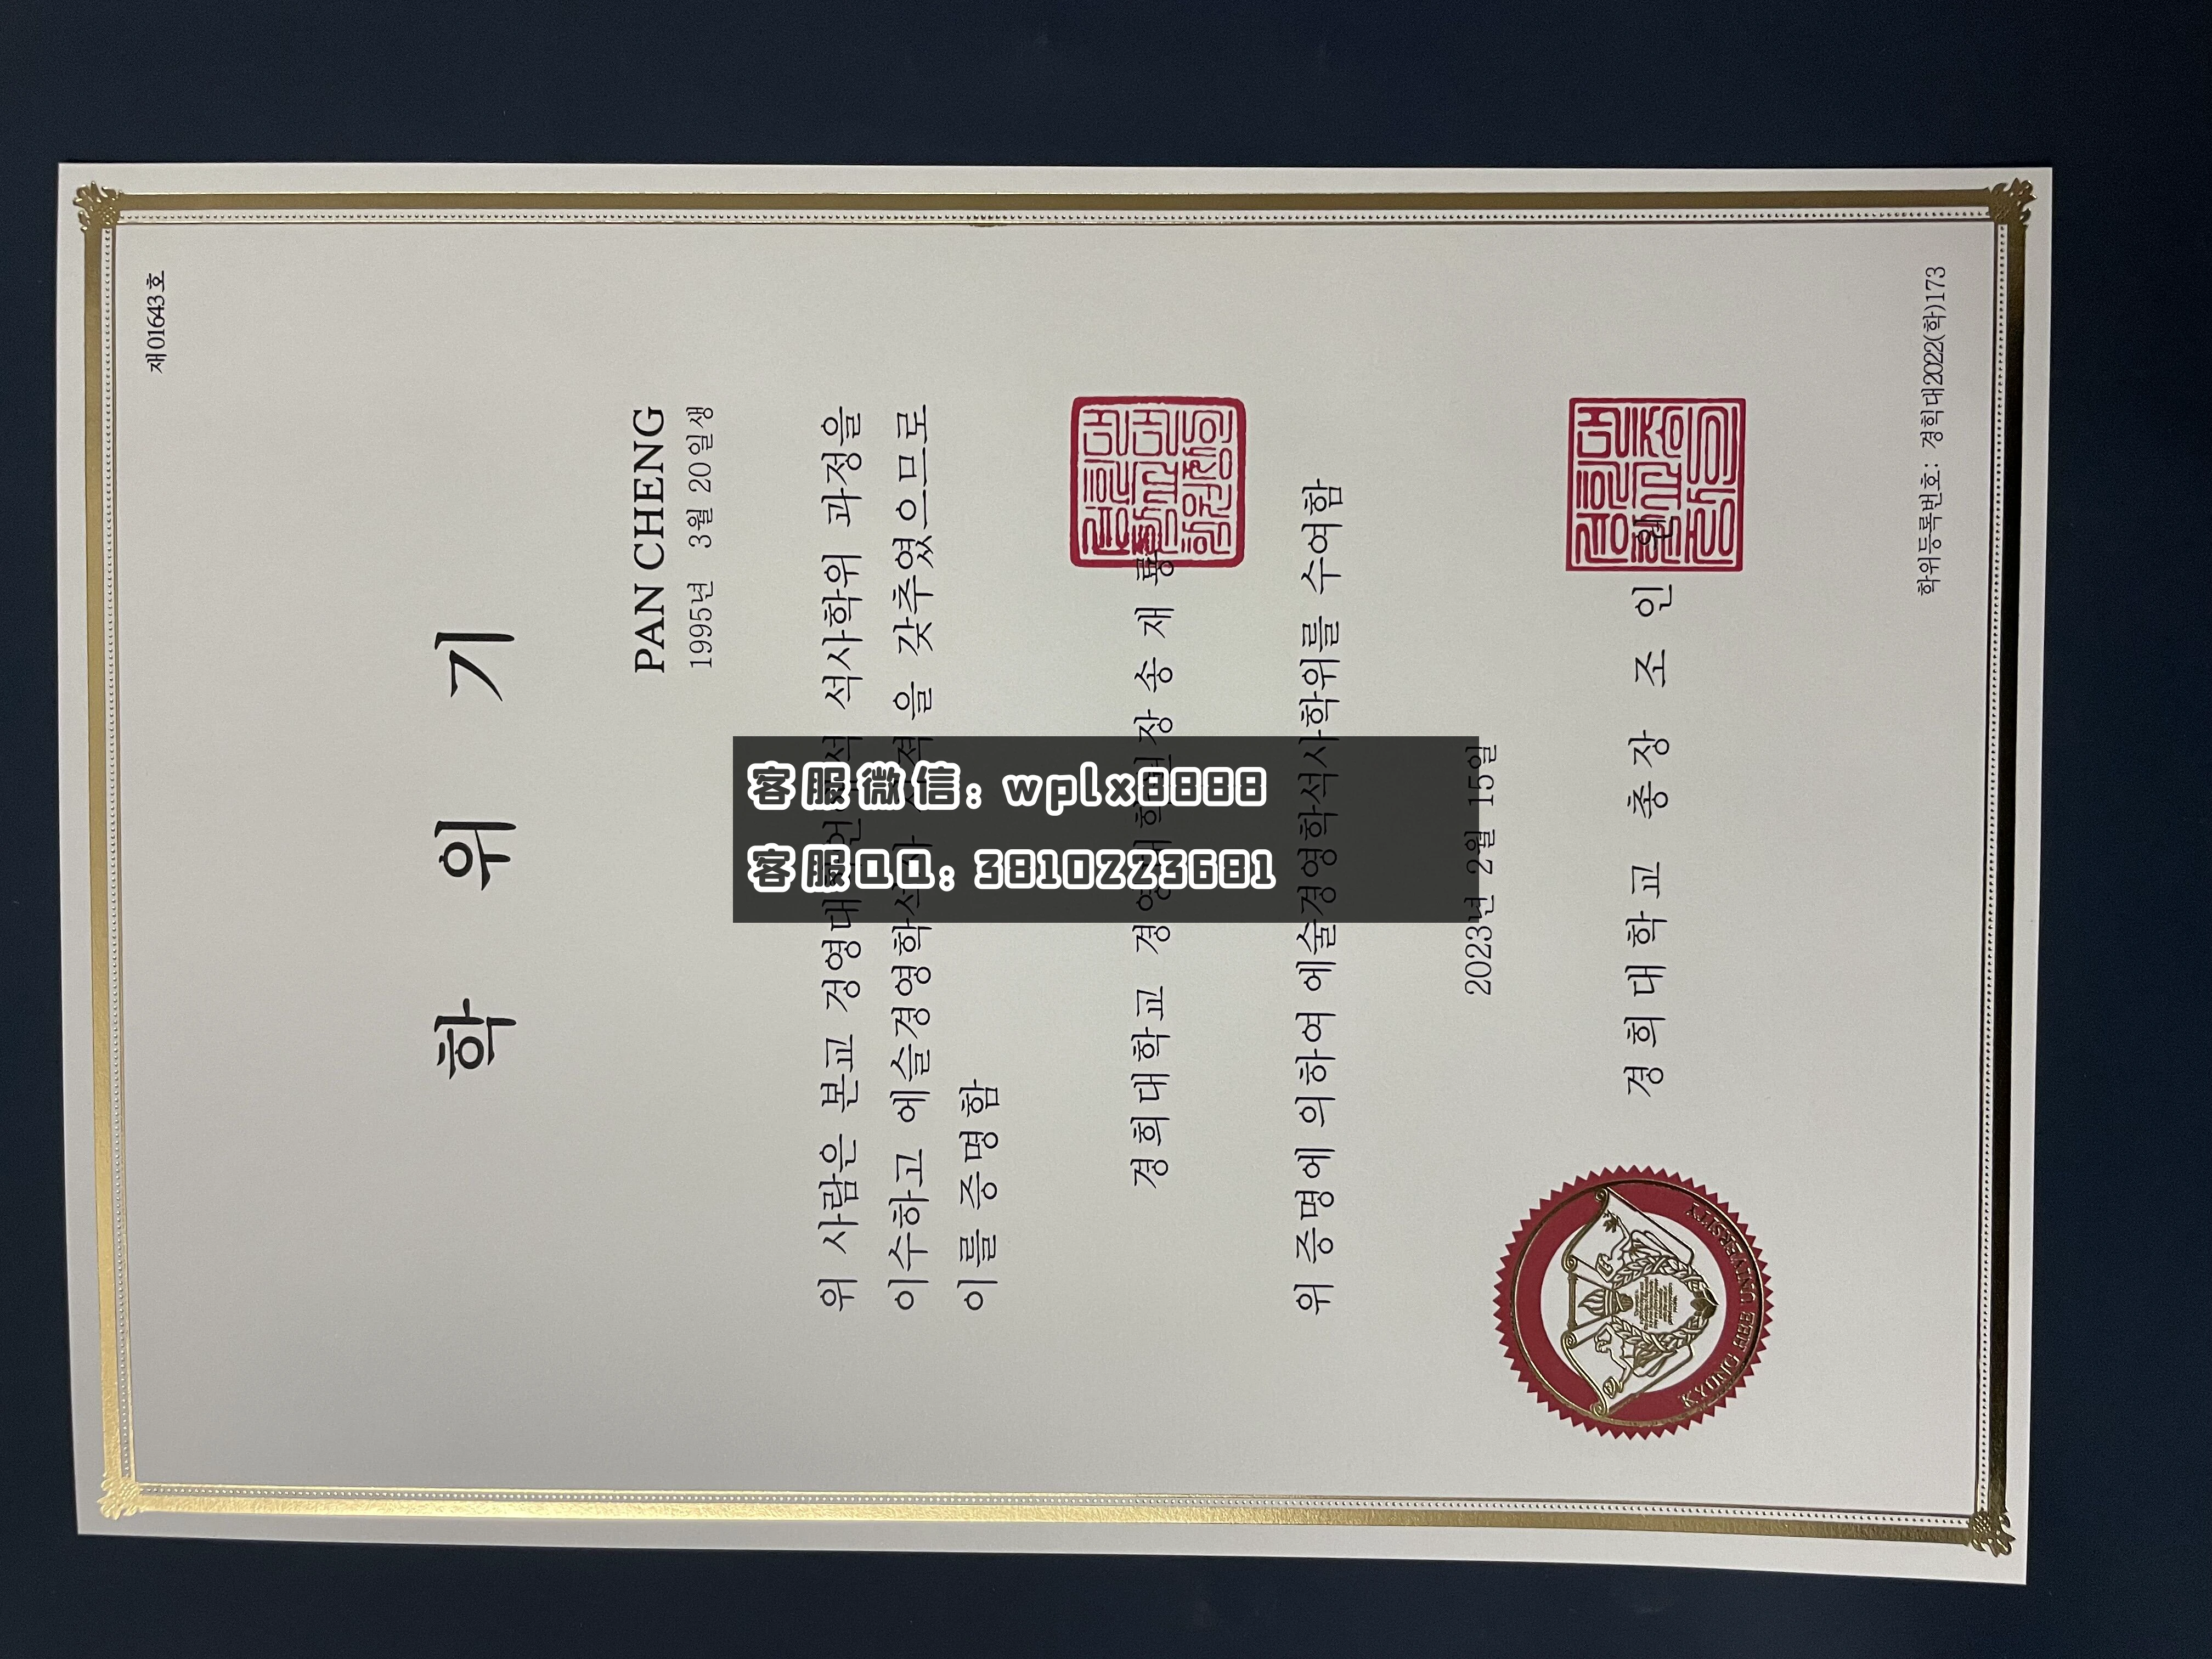 제01643호
학 위 기
PAN CHENG
1995년 3월 20일생
위 사람은 본교 경영대 석사학위 과정을
이수하고 에슬경영학석사 을 갖추였으므로
이를 증명함
경희대학교 경영대학원장 송 재 룡
위 증명에 의하여 에술경영학석사학위를 수여함
2023년 2월 15일
경 희 대 학 교 총 장 조 인 원
KYUNG HEE UNIVERSITY
학위등록번호: 경학대2022(학)173
客服微信: wplx8888
客服QQ: 3810223681